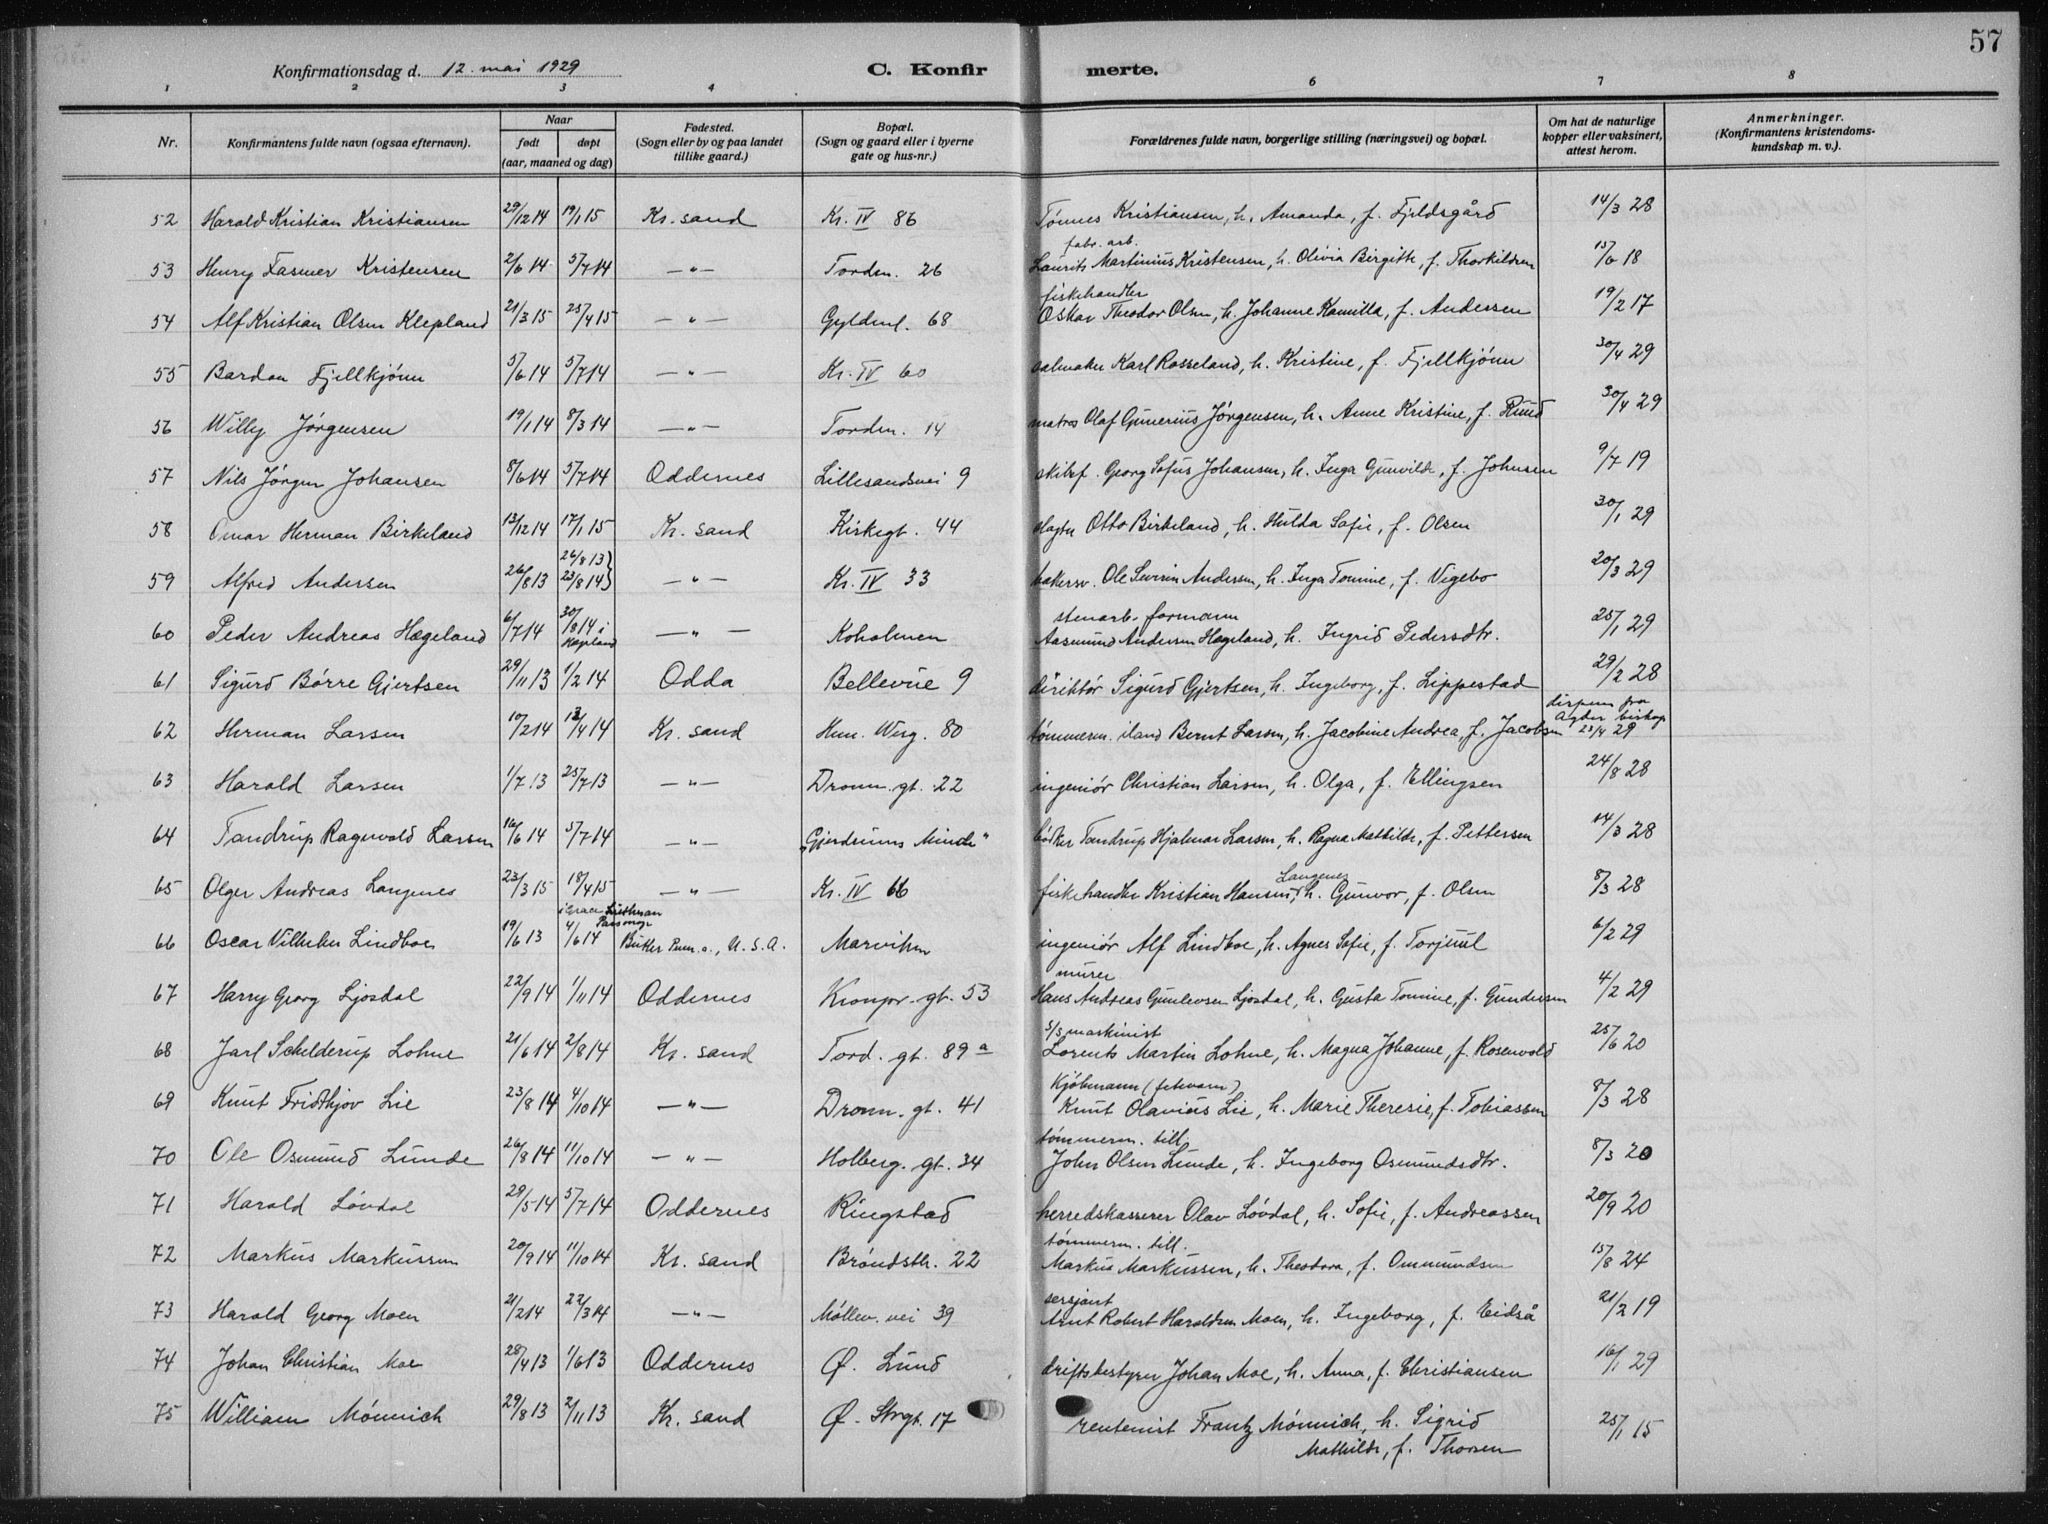 57
Konfirmationsdag d. 12. mai 1929 C. Konfirmerte.
1 2 3 4 6 7 8
Nr. Konfirmantens fulde navn (ogsaa efternavn). Naar født døpt (aar, maaned og dag) Fødested. (Sogn eller by og paa landet tillike gaard.) Bopæl. (Sogn og gaard eller i byerne gate og hus-nr.) Forældrenes fulde navn, borgerlige stilling (næringsvei) og bopæl. Om hat de naturlige kopper eller vaksinert, attest herom. Anmerkninger. (Konfirmantens kristendomskundskap m. v.).
52 Harald Kristian Kristiansen 29/12 14 19/1 15 Kr. sand Kr. IV 86 Tønnes Kristiansen, h. Amanda, f. Fjeldsgård 14/3 28
fabr. arb.
53 Henry Fasmer Kristensen 2/6 14 5/7 14 —"— Tordm. 26 Laurits Martinius Kristensen, h. Olivia Birgitte, f. Thorkildsen 15/6 18
fiskehandler
54 Alf Kristian Olsen Klepland 21/3 15 25/4 15 —"— Gyldenl. 68 Oskar Theodor Olsen, h. Johanne Kamilla, f. Andersen 19/2 17
55 Bardon Fjellkjønn 5/6 14 5/7 14 —"— Kr. IV 60 salmaker Karl Rosseland, h. Kristine, f. Fjellkjønn 30/4 29
56 Willy Jørgensen 19/1 14 8/3 14 —"— Tordm. 14 matros Olaf Gunerius Jørgensen, h. Anne Kristine, f. Ruud 30/4 29
57 Nils Jørgen Johansen 8/6 14 5/7 14 Oddernes Lillesandsvei 9 skibsf. Georg Sofus Johansen, h. Inga Gunvilde, f. Johnsen 9/7 19
58 Omar Herman Birkeland 13/12 14 17/1 15 Kr. sand Kirkegt. 44 slagter Otto Birkeland, h. Hulda Sofie, f. Olsen 30/1 29
26/8 13}
59 Alfred Andersen 26/8 13 23/8 14} —"— Kr. IV 33 bakersv. Ole Severin Andersen, h. Inga Tomine, f. Vigebo 20/3 29
stenarb. formann
60 Peder Andreas Hægeland 6/7 14 30/8 14 i Hægeland —"— Koholmen Aasmund Andersen Hægeland, h. Ingrid Pedersdtr. 25/1 29
61 Sigurd Børre Gjertsen 29/11 13 1/2 14 Odda Bellevue 9 direktør Sigurd Gjertsen, h. Ingeborg, f. Lippestad 29/2 28
dispens fra
Agder biskop
62 Herman Larsen 10/2 14 13/4 14 Kr. sand Hen. Werg. 80 tømmerm. iland Bernt Larsen, h. Jacobine Andrea, f. Jacobsen 23/4 29
63 Harald Larsen 1/7 13 25/7 13 —"— Dronn. gt. 22 ingeniør Christian Larsen, h. Olga, f. Ellingsen 24/8 28
64 Tandrup Ragnvald Larsen 16/6 14 5/7 14 —"— "Gjerdrums Minde" bøtker Tandrup Hjalmar Larsen, h. Ragna Mathilde, f. Pettersen 14/3 28
Langenes
65 Olger Andreas Langenes 23/3 15 18/4 15 —"— Kr. IV 66 fiskehandler Kristian Hansen, h. Gunvor, f. Olsen 8/3 28
i Grace Lutheran Parsonage
66 Oscar Vilhelm Lindboe 19/6 13 4/6 14 Butler Penn.a., U.S.A. Marvika ingeniør Alf Lindboe, h. Agnes Sofie, f. Torjuul 6/2 29
murer
67 Harry Georg Ljosdal 22/9 14 1/11 14 Oddernes Kronpr. gt. 53 Hans Andreas Gunlevsen Ljosdal, h. Gusta Tomine, f. Gundersen 4/2 29
s/s maskinist
68 Jarl Schelderup Lohne 21/6 14 2/8 14 Kr. sand Tord. gt. 89 a Lorents Martin Lohne, h. Magna Johanne, f. Rosenvold 25/6 20
Kjøbmann (fetevarer)
69 Knut Fridthjov Lie 23/8 14 4/10 14 —"— Dronn. gt. 41 Knut Olavius Lie, h. Marie Theresie, f. Tobiassen 8/3 28
tømmerm. till.
70 Ole Osmund Lunde 26/8 14 11/10 14 —"— Holberg. gt. 34 John Olsen Lunde, h. Ingeborg Osmundsdtr. 8/3 20
71 Harald Løvdal 29/5 14 5/7 14 Oddernes Ringstad herredskasserer Olav Løvdal, h. Sofie, f. Andreassen 20/9 20
tømmerm. till.
72 Markus Markussen 20/9 14 11/10 14 Kr. sand Brøndstk. 22 Markus Markussen, h. Theodora, f. Ommundsen 15/8 24
sersjant
73 Harald Georg Moen 21/2 14 22/3 14 —"— Møllev. vei 39 Arnt Robert Haraldsen Moen, h. Ingeborg, f. Eidså 21/2 19
74 Johan Christian Moe 28/4 13 1/6 13 Oddernes Ø. Lund driftsbestyrer Johan Moe, h. Anna, f. Christiansen 16/1 29
75 William Mönnich 29/8 13 2/11 13 Kr. sand Ø. Strgt. 17 rentenist Frantz Mönnich, h. Sigrid 25/1 15
Mathilde, f. Thorsen